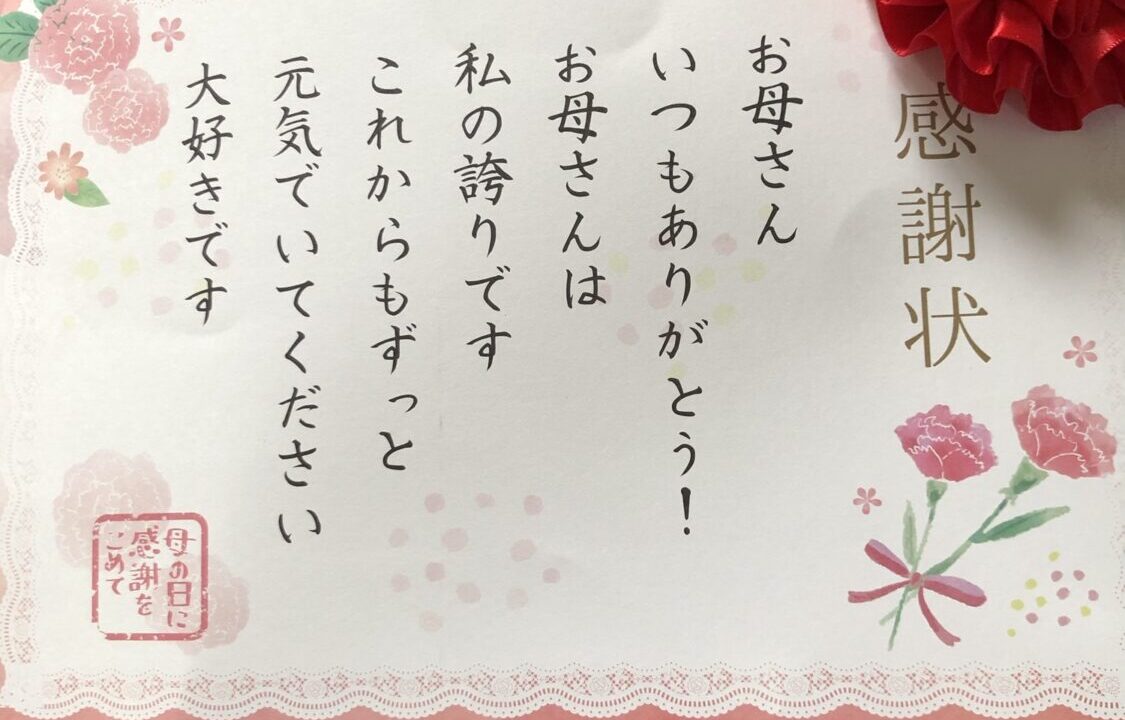 感謝状
お母さん
いつもありがとう！
お母さんは
私の誇りです
これからもずっと
元気でいてください
大好きです
母の日に
感謝を
こめて